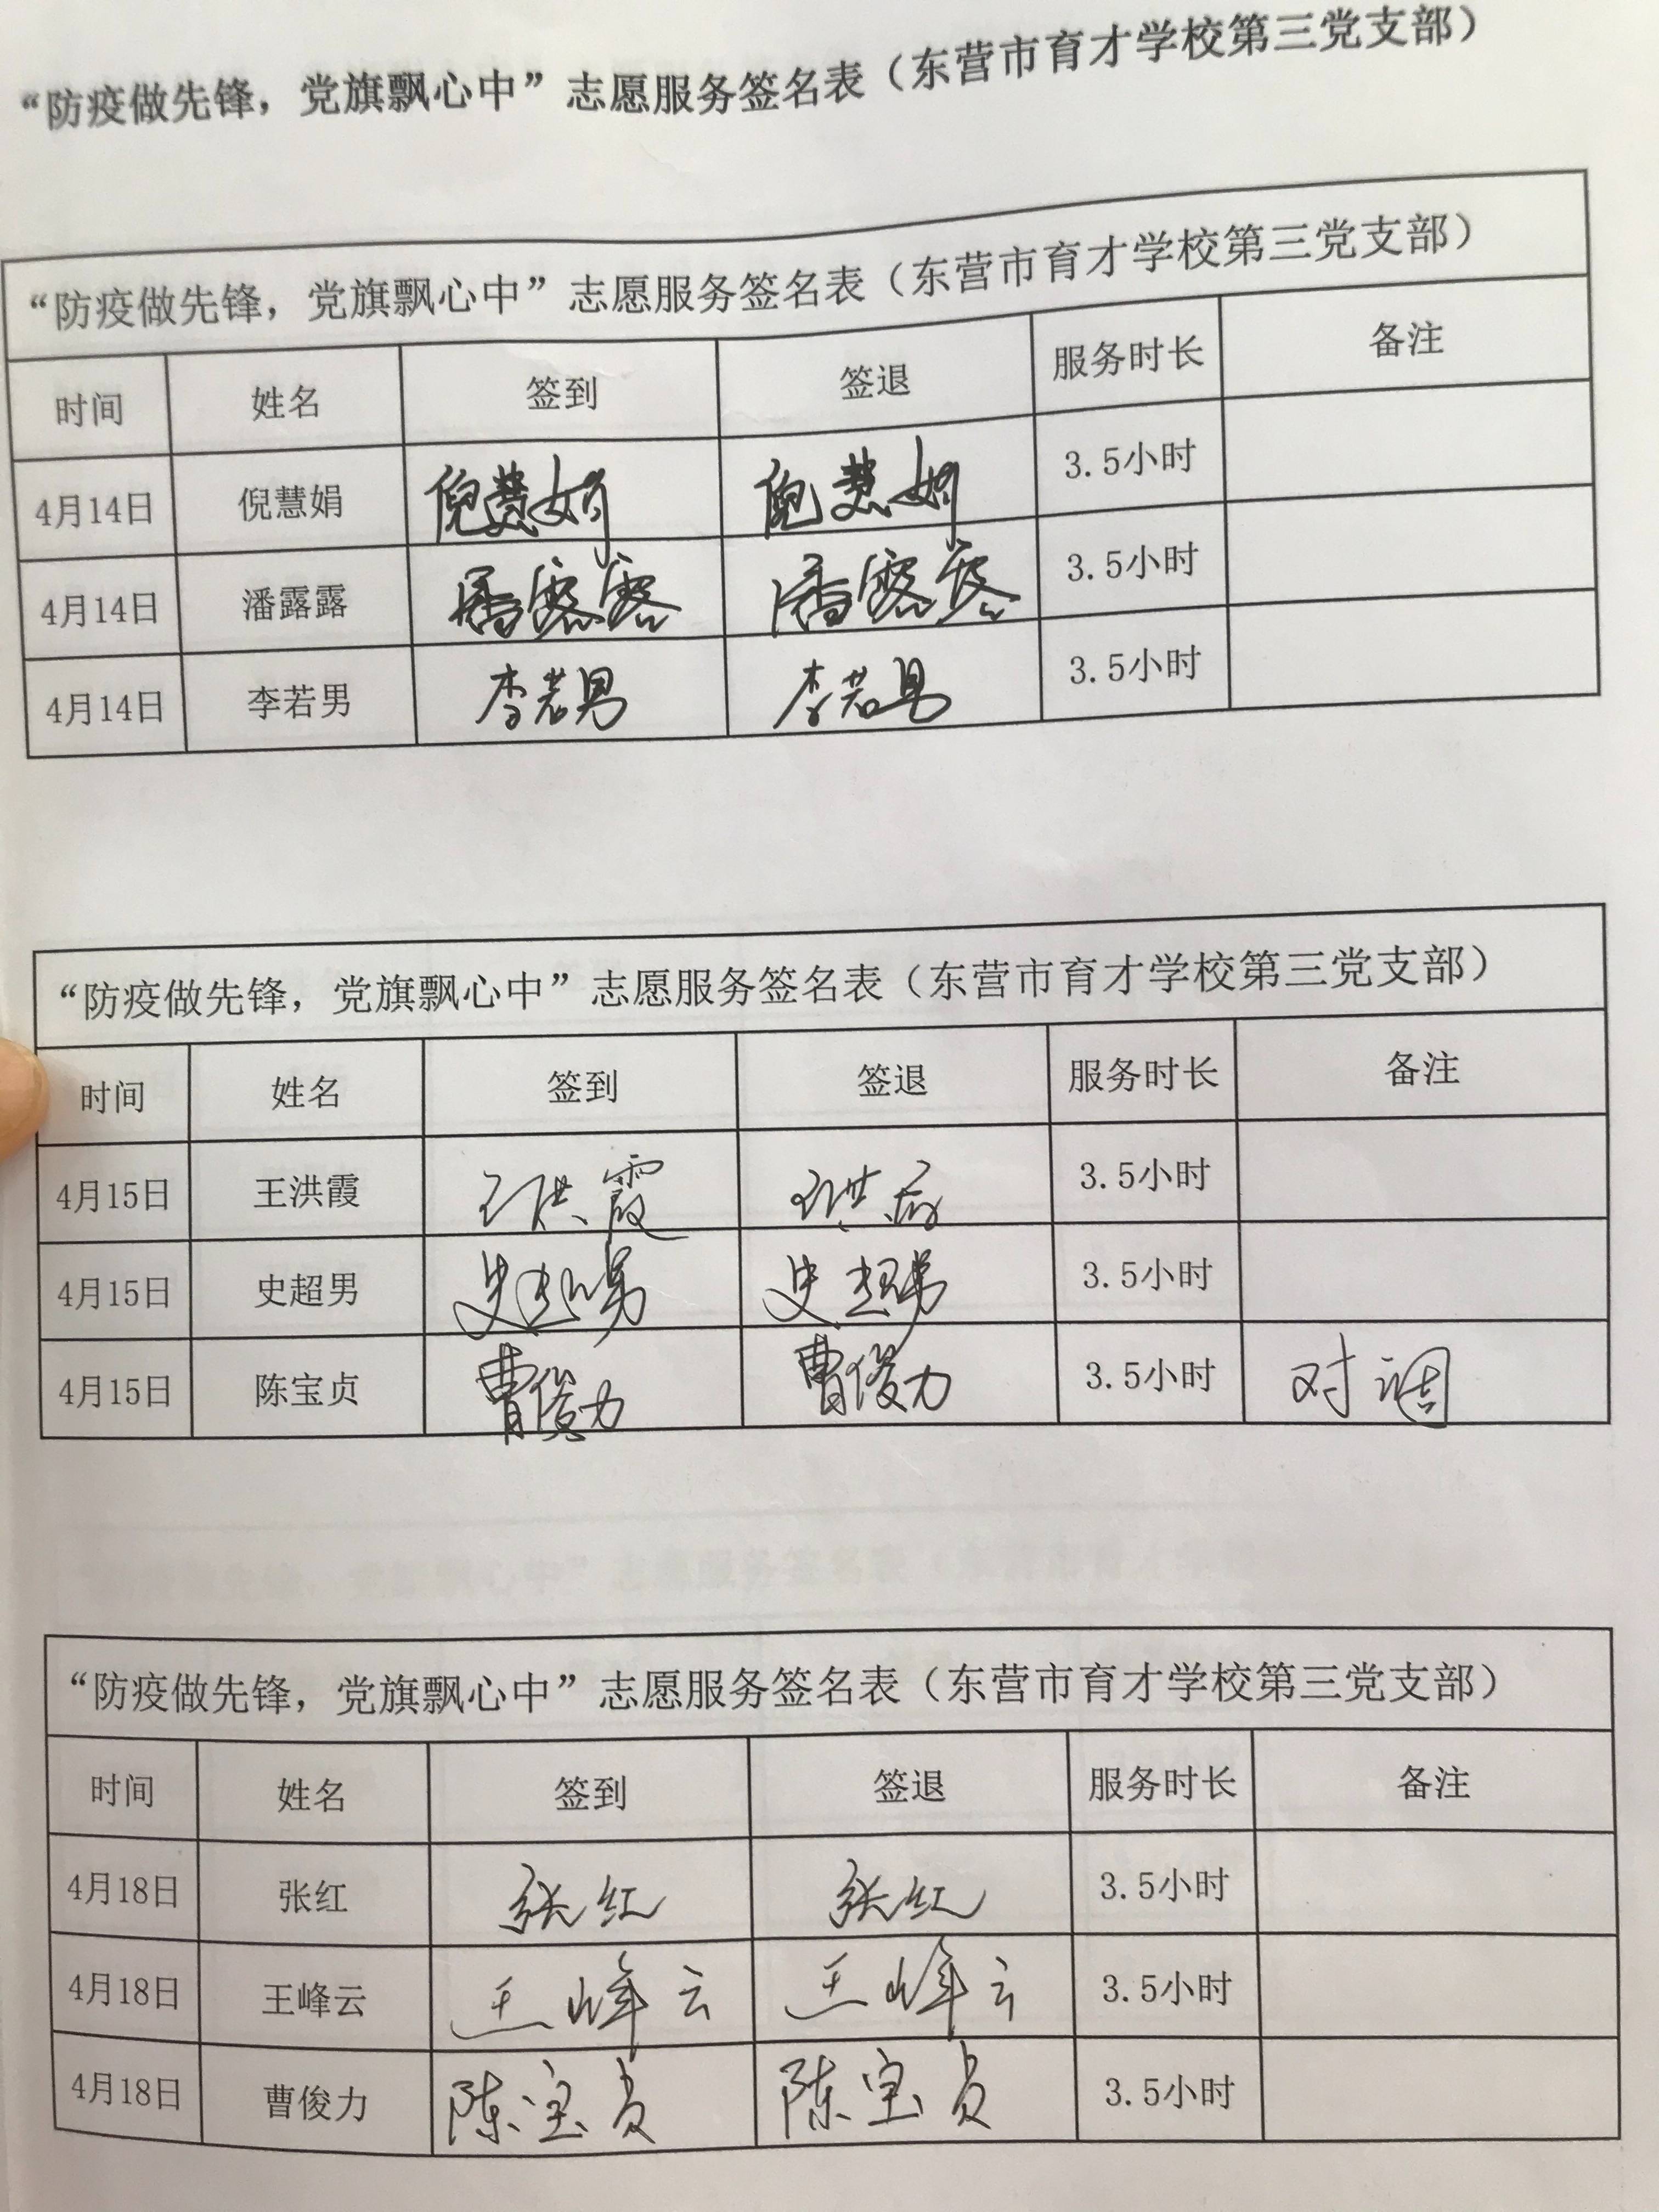 “防疫做先锋，党旗飘心中”志愿服务签名表（东营市育才学校第三党支部）
“防疫做先锋，党旗飘心中”志愿服务签名表（东营市育才学校第三党支部）
时间 姓名 签到 签退 服务时长 备注
4月14日 倪慧娟 倪慧娟 倪慧娟 3.5小时
4月14日 潘露露 潘露露 潘露露 3.5小时
4月14日 李若男 李若男 李若男 3.5小时
“防疫做先锋，党旗飘心中”志愿服务签名表（东营市育才学校第三党支部）
时间 姓名 签到 签退 服务时长 备注
4月15日 王洪霞 王洪霞 王洪霞 3.5小时
4月15日 史超男 史超男 史超男 3.5小时
4月15日 陈宝贞 曹俊力 曹俊力 3.5小时 对调
“防疫做先锋，党旗飘心中”志愿服务签名表（东营市育才学校第三党支部）
时间 姓名 签到 签退 服务时长 备注
4月18日 张红 张红 张红 3.5小时
4月18日 王峰云 王峰云 王峰云 3.5小时
4月18日 曹俊力 陈宝贞 陈宝贞 3.5小时